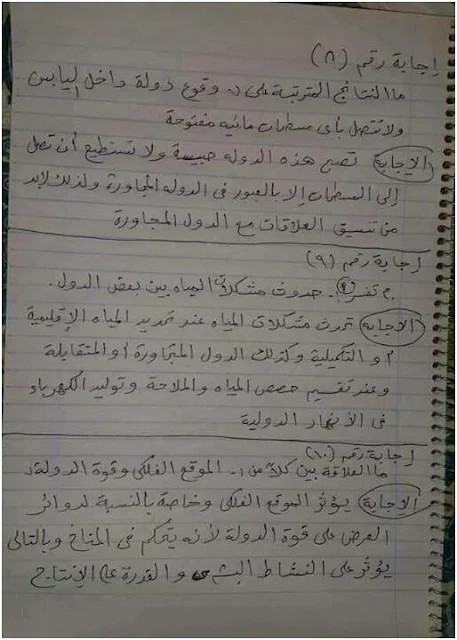 إجابة رقم (٨)
ما النتائج المترتبة على :. وقوع دولة داخل اليابس
ولا تتصل بأى مسطحات مائيه مفتوحة
الإجابة تصبح هذه الدوله حبيسة ولا تستطيع أن تصل
إلى المسطحات إلا بالعبور فى الدوله المجاورة ولذلك لابد
من تنسيق العلاقات مع الدول المجاورة
إجابة رقم (٩)
بم تفسر :. حدوث مشكلات المياه بين بعض الدول.
الاجابه تحدث مشكلات المياه عند تحديد المياه الإقليمية
أو التكميلية وكذلك الدول المتجاورة أو المتقابلة
وعند تقسيم حصص المياه والملاحة وتوليد الكهرباء
فى الأنهار الدولية
إجابة رقم (١٠)
ما العلاقة بين كلاً من :. الموقع الفلكى وقوة الدولة
الإجابة يؤثر الموقع الفلكى وخاصة بالنسبة لدوائر
العرض على قوة الدولة لأنه يتحكم فى المناخ وبالتالى
يؤثر على النشاط البشرى والقدرة على الإنتاج